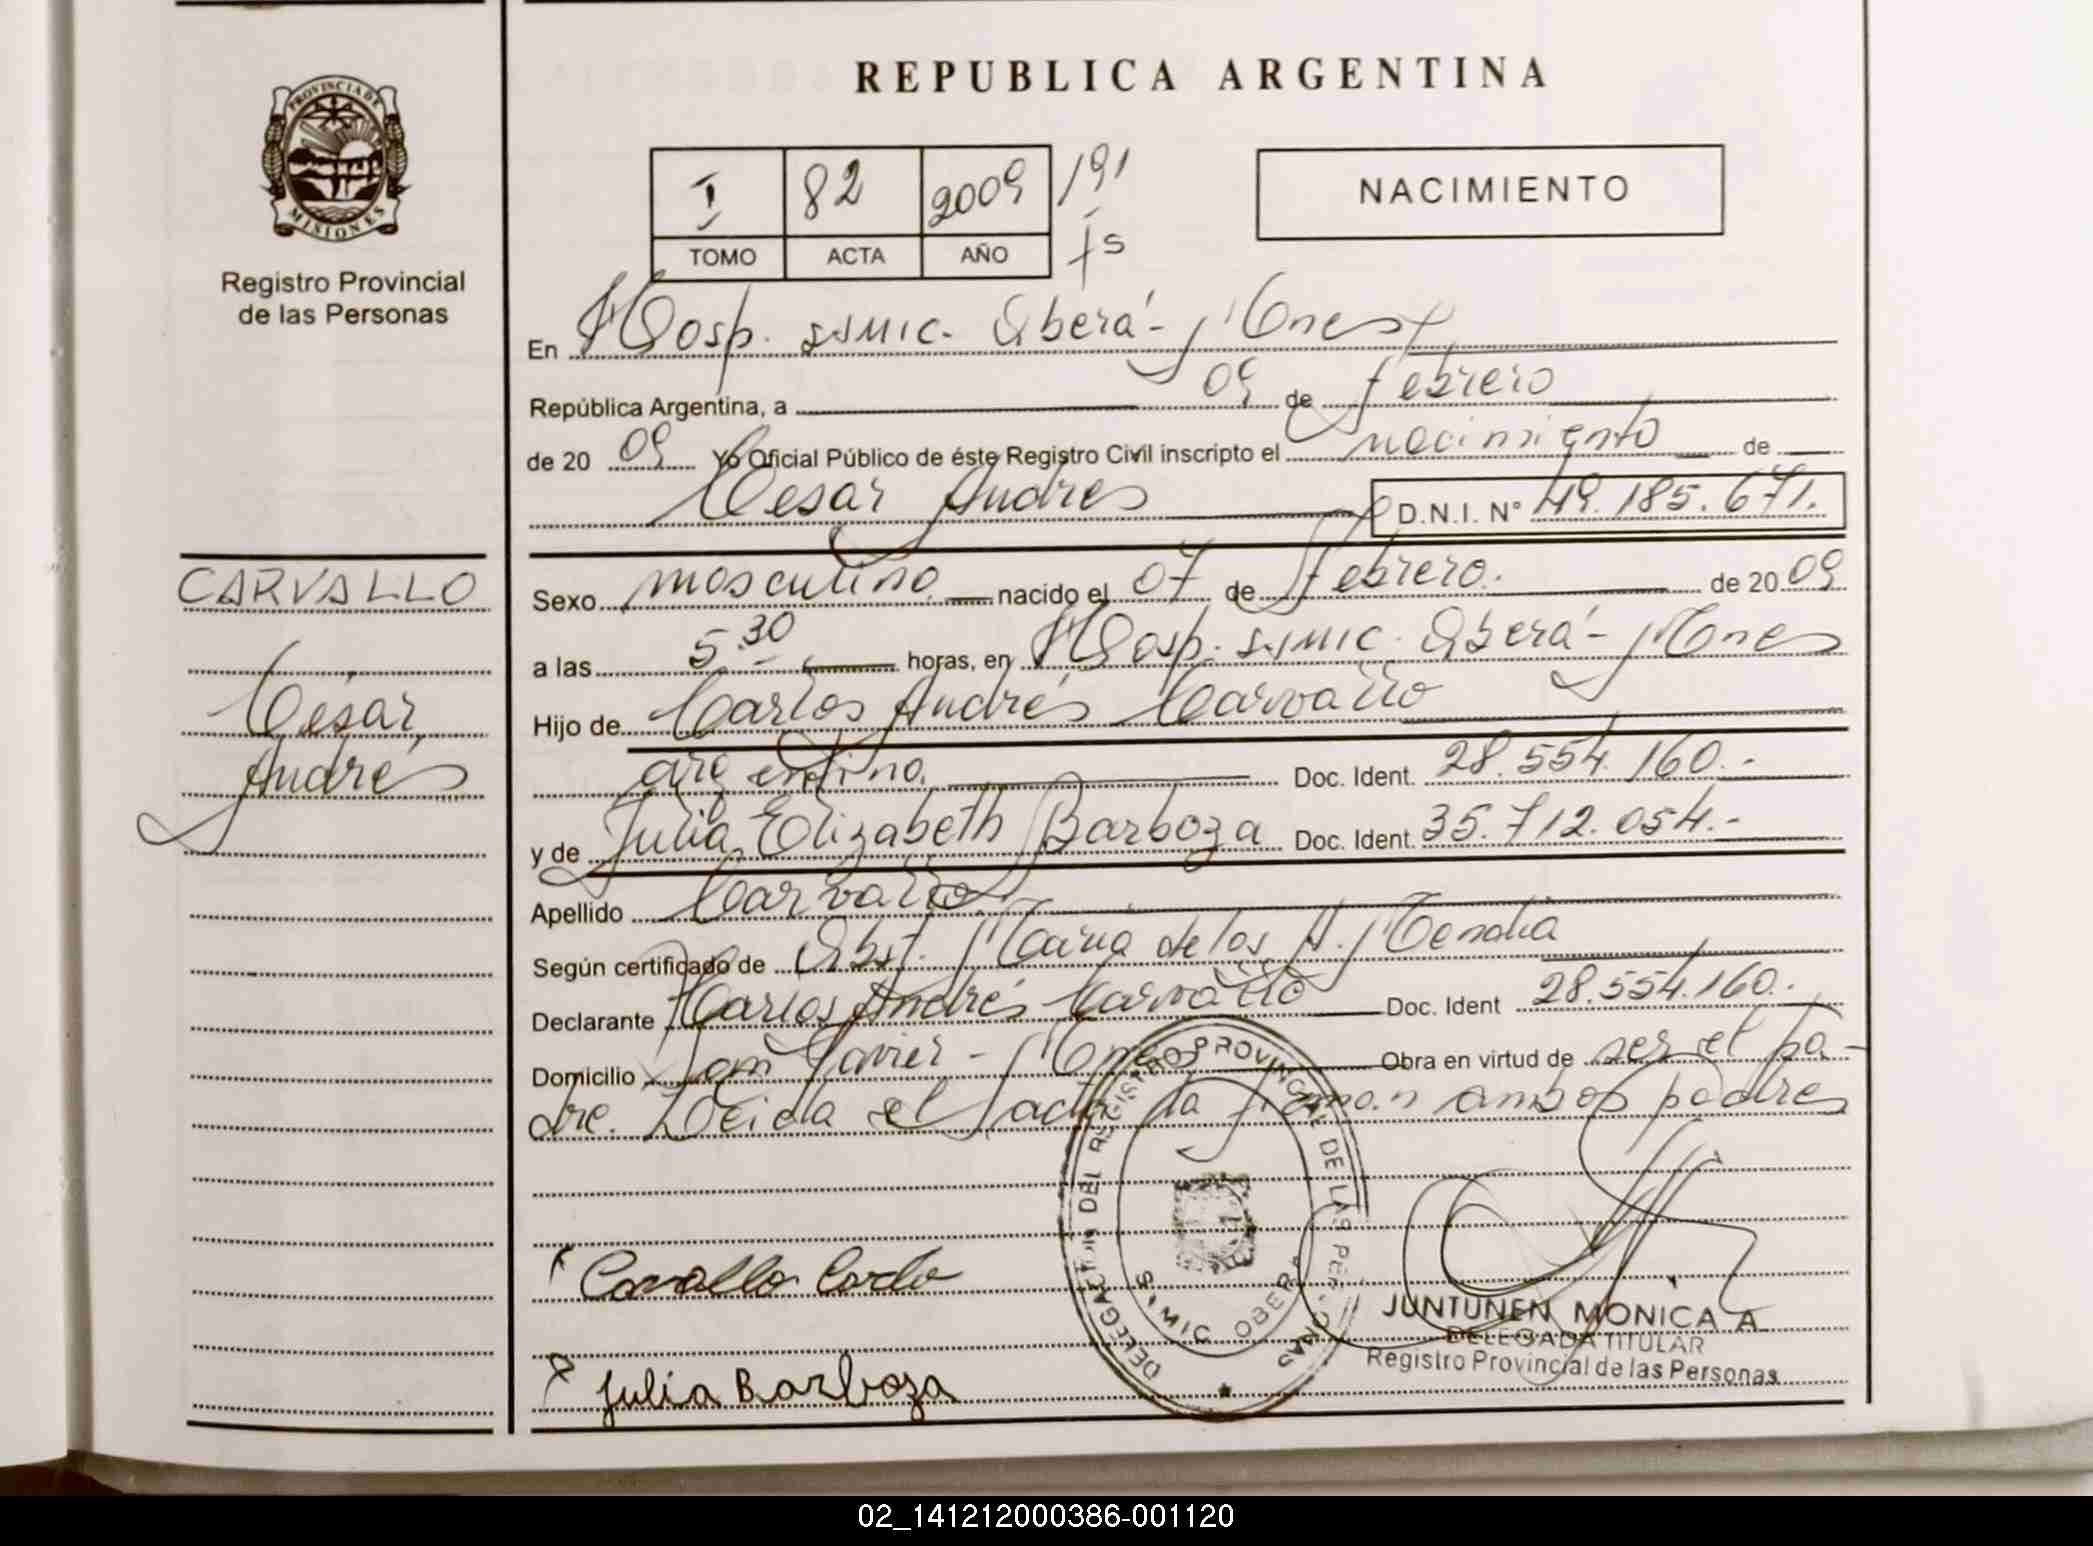 PROVINCIA DE MISIONES
Registro Provincial
de las Personas
CARVALLO
César
Andrés
REPUBLICA ARGENTINA
I 82 2009 /91
TOMO ACTA AÑO fs
NACIMIENTO
En Hosp. SSMIC. Oberá - Mnes
República Argentina, a 09 de febrero
de 20 09 Yo Oficial Público de éste Registro Civil inscripto el nacimiento de
César Andrés D.N.I. N° 49.185.671.
Sexo masculino nacido el 07 de febrero. de 20 09
a las 5.30 horas, en Hosp. SSMIC. Oberá - Mnes
Hijo de Carlos Andrés Carvallo
argentino. Doc. Ident. 28.554.160.-
y de Julia Elizabeth Barboza Doc. Ident. 35.712.054.-
Apellido Carvallo
Según certificado de Obst. María de los A.
Declarante Carlos Andrés Carvallo Doc. Ident 28.554.160.-
Domicilio San Javier - Mnes Obra en virtud de ser el pa-
dre. Leida el acta la firman ambos padres
DELEGACION DEL REGISTRO PROVINCIAL DE LAS PERSONAS
SAMIC OBERA
Carvallo Carlo
Julia Barboza
JUNTUNEN MONICA A
DELEGADA TITULAR
Registro Provincial de las Personas
02_141212000386-001120